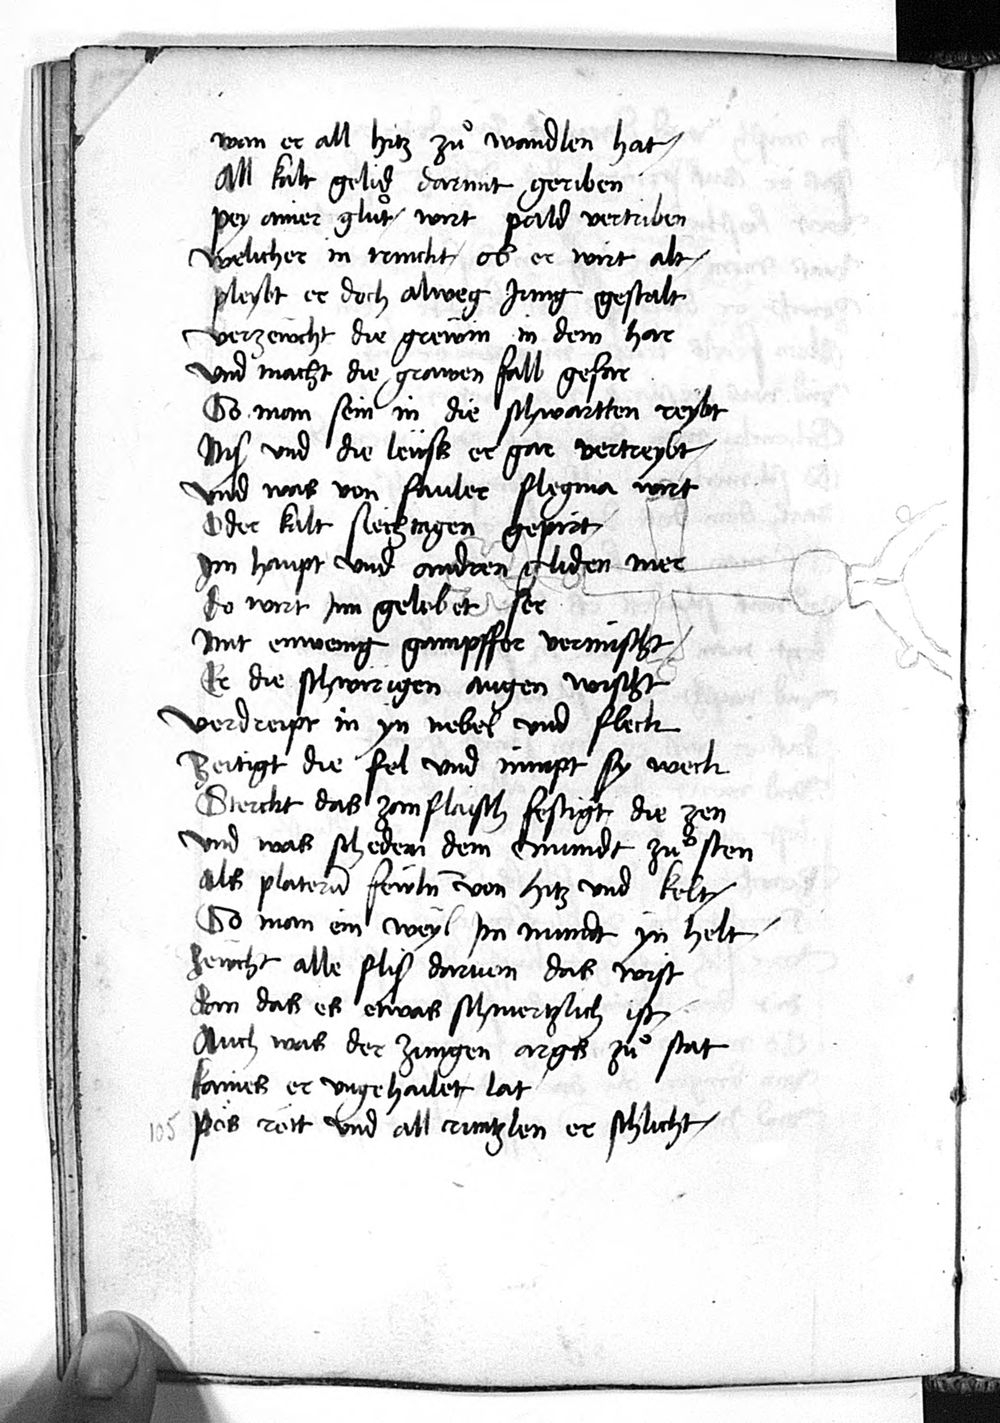 wan er all hitz zuͦ wandlen hat /
All kalt gelid darmit geriben
pey ainer gluͦt / wirt pald vertriben
welicher in trinckt / ob er wirt alt /
pleybt er doch alweg Jung gestalt
verzeücht die greẅin in dem har
vnd macht die grawen fall gefar
So man sein in die schwartten reybt
Niſ vnd die leüſs er gar vertreybt /
vnd was von fauler flegma wirt
Oder kalt siechtagen gepirt /
Im haupt vnd andren gliden mer
do wirt Im gelobet ser
Mit enwenig gampffor vermischt /
Er die schwirigen augen wischt
verdreipt in yn nebel vnd fleck
Zeitigt die fel vnd nimpt sy weck
Sterckt das zanflaisch festigt die zen
vnd was schedem dem mundt zuͦ sten
als platerñ feẅlñ von hitz vnd kelt /
So man ein weyl Jm mundt yn helt /
Zeücht alle fliſ darumm das wist
dan das es etwas schmertzlich ist /
Auch was der zungen args zuͦ stat
kaines er vngehailet lat
105 pös rött vnd all runtzlen er schlicht /